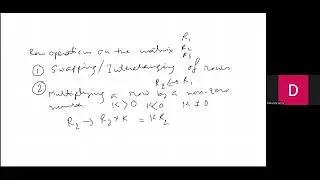 Row operations on the matrix R₁
R₂
R₃
① Swapping/Interchanging of rows
R₂ ↔ R₁
② Multiplying a row by a non-zero
K > 0 K < 0 K ≠ 0
R₂ → R₂ × K = K R₂
D